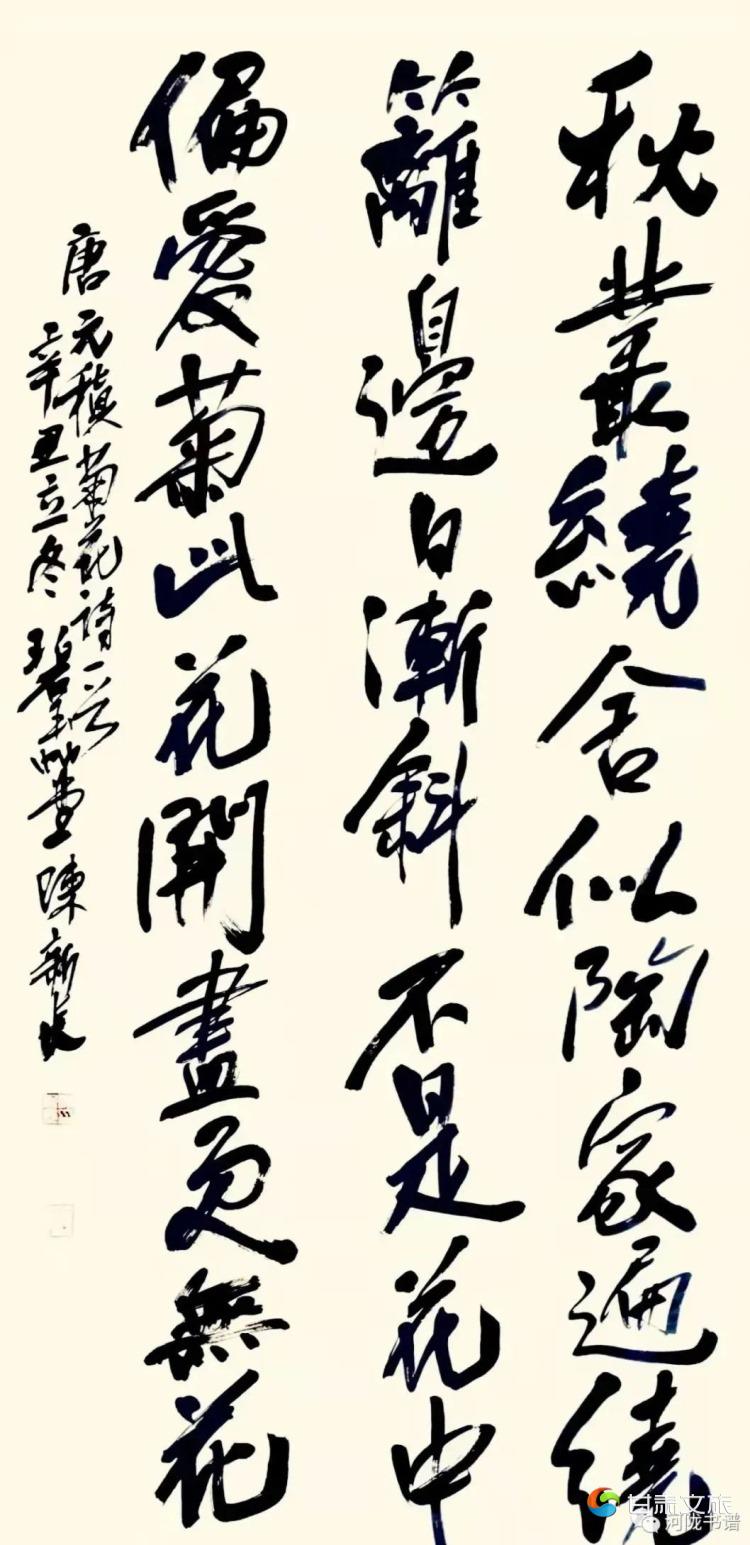 秋叢繞舍似陶家遍繞
籬邊日漸斜不是花中
偏愛菊此花開盡更無花
唐元稹菊花詩一首
辛丑立冬碧雲堂陳新長
甘肃文旅
河陇书谱